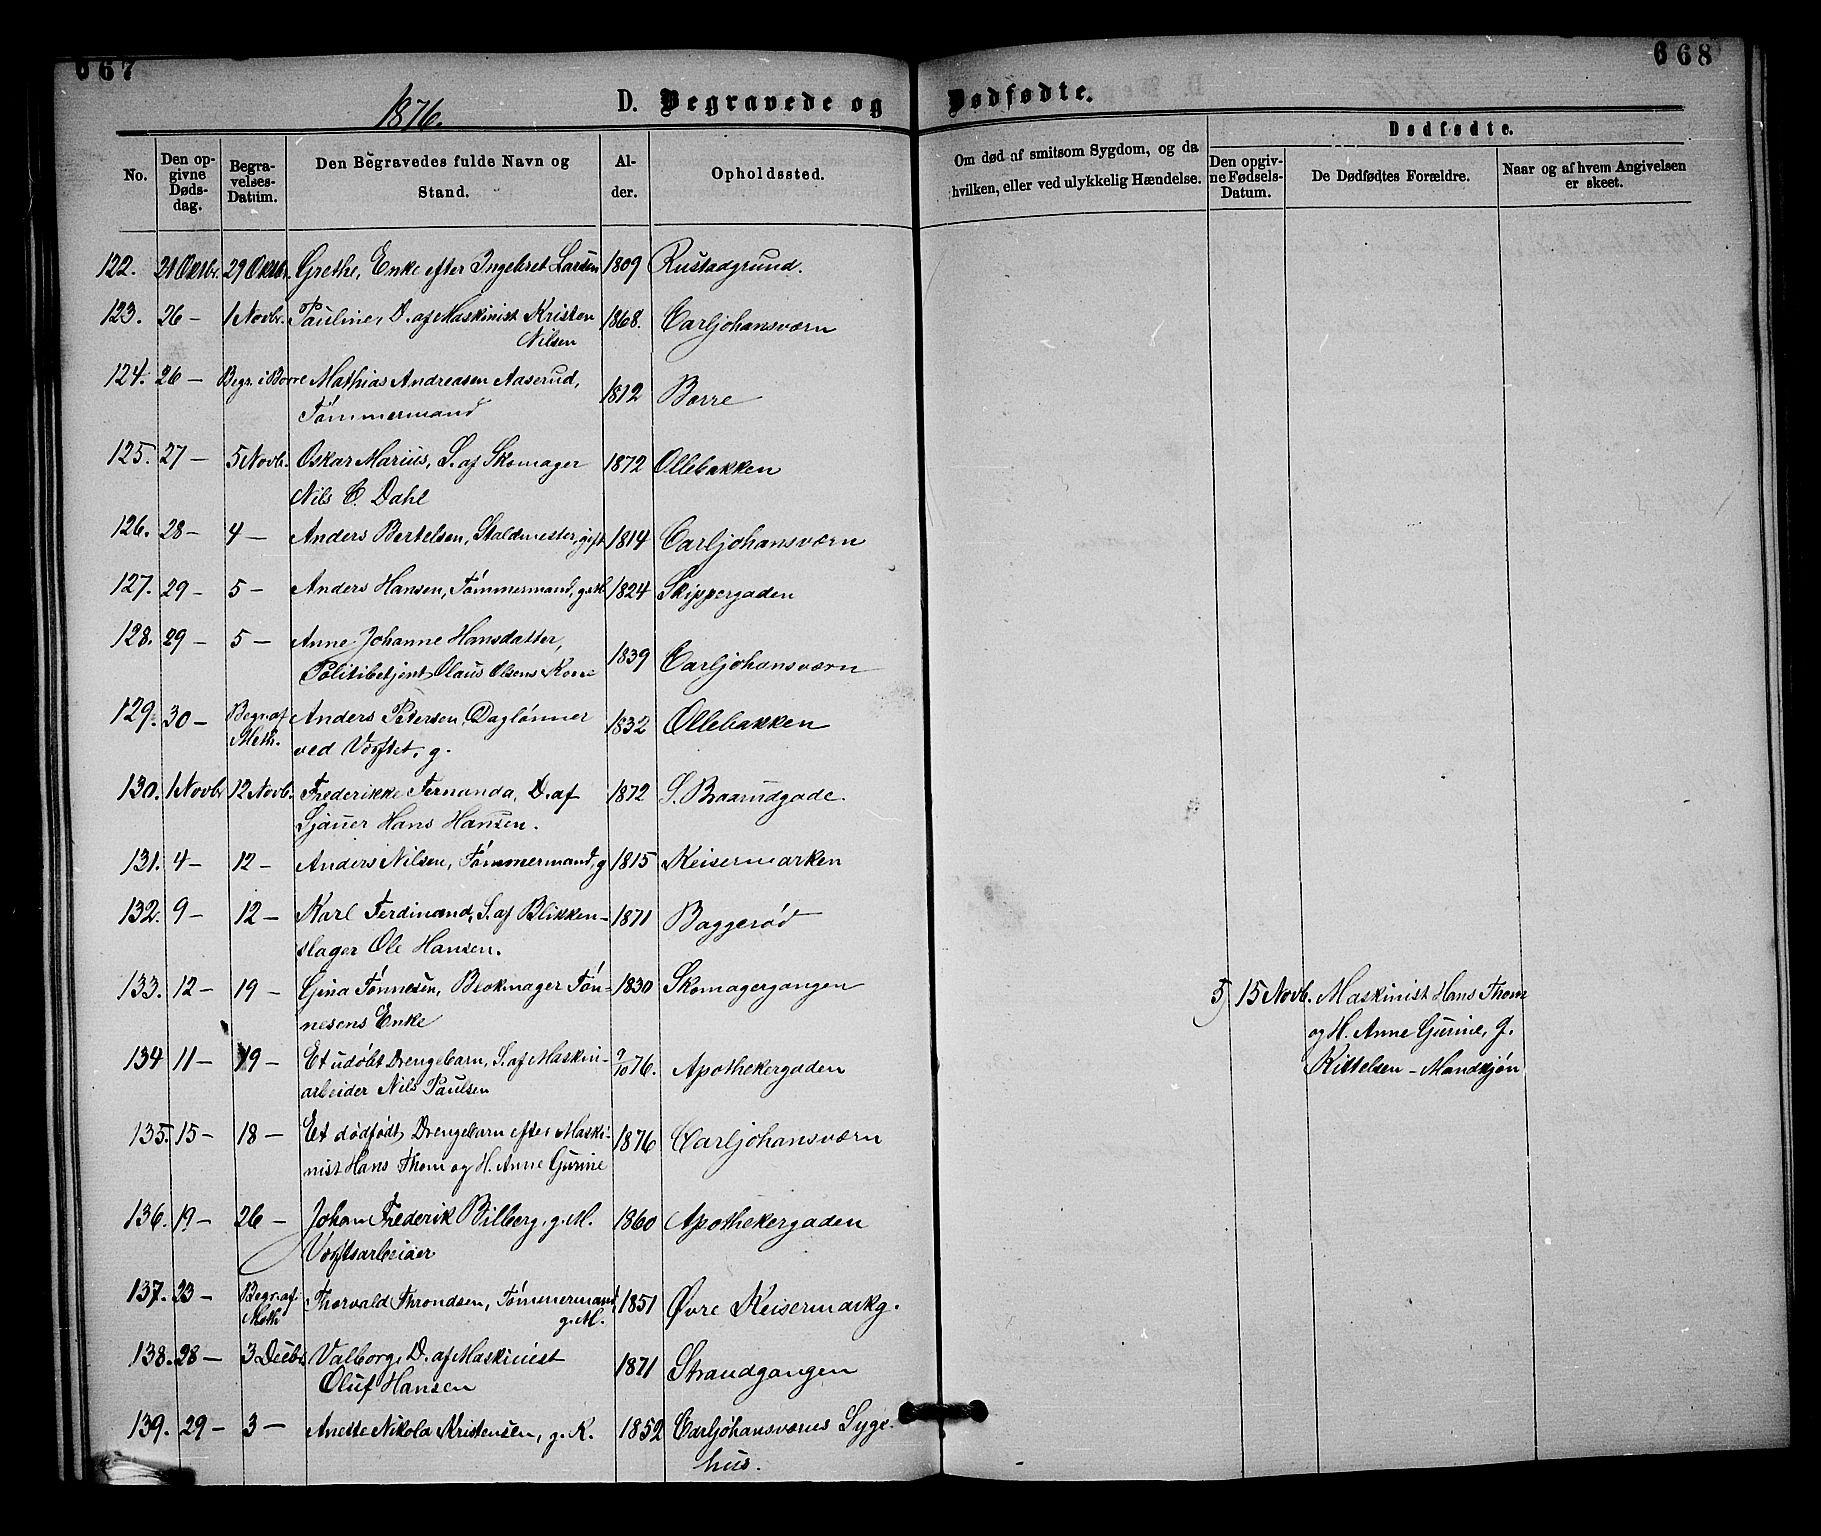 667
668
1876.
D. Begravede og Dødfødte.
No.
Den opgivne Dødsdag.
Begravelses-Datum.
Den Begravedes fulde Navn og Stand.
Alder.
Opholdssted.
Om død af smitsom Sygdom, og da hvilken, eller ved ulykkelig Hændelse.
Dødfødte.
Den opgivne Fødsels-Datum.
De Dødfødtes Forældre.
Naar og af hvem Angivelsen er skeet.
122. 21 Oktbr. 29 Oktbr. Grethe, Enke efter Ingebret Larsen 1809 Rustadgrund.
123. 26 – 1 Novbr. Pauline, D. af Maskinist Kristen 1868. Carljohansværn
Nilsen
124. 26 – Begr. i Borre Mathias Andreasen Aaserud, 1812 Borre
Tømmermand
125. 27 – 5 Novb. Oskar Marius, S. af Skomager 1872 Ollebakken
Nils C. Dahl
126. 28 – 4 – Anders Bertelsen, Staldmester, gift 1814 Carljohansværn
127. 29 – 5 – Anders Hansen, Tømmermand, 1824 Skippergaden
128. 29 – 5 – Anne Johanne Hansdatter,
Politibetjent Olaus Olsens Kone 1839 Carljohansværn
129. 30 – Begr. af Anders Petersen, Daglønner 1832 Ollebakken
Meth. ved Værftet, g.
130. 1 Novbr 12 Novb. Frederikke Fernanda, D. af 1872 S. Baarudgade.
Sjauer Hans Hansen.
131. 4 – 12 – Anders Nilsen, Tømmermand, g 1815 Keisermarken
132. 9 – 12 – Karl Ferdinand, S. af Blikken- 1871 Baggerød
slager Ole Hansen.
133. 12 – 19 – Gina Tønnesen, Blokmager Tøn- 1830 Skomagergangen
nesens Enke
5) 15 Novb. Maskinist Hans Thom
og H. Anne Gurine, f.
Kittelsen –
134 11 – 19 – Et udøbt Drengebarn, S. af Maskin- 9/10 76. Apothekergaden
arbeider Nils Paulsen
135. 15 – 18 – Et dødfødt Drengebarn efter Maski- 1876 Carljohansværn
nist Hans Thom og H. Anne Gurine
136. 19 – 26 – Johan Frederik Bilberg, g. M. 1860 Apothekergaden
Værftsarbeider
137. 23 – Begr. af Thorvald Throndsen, Tømmermand, 1851 Øvre Keisermarkg.
Meth g. M.
138. 28 – 3 Decbr Valborg, D. af Maskinist 1871 Strandgangen
Oluf Hansen
139. 29 – 3 – Anette Nikola Kristensen, g. K. 1852 Carljohansværns Syge-
hus.